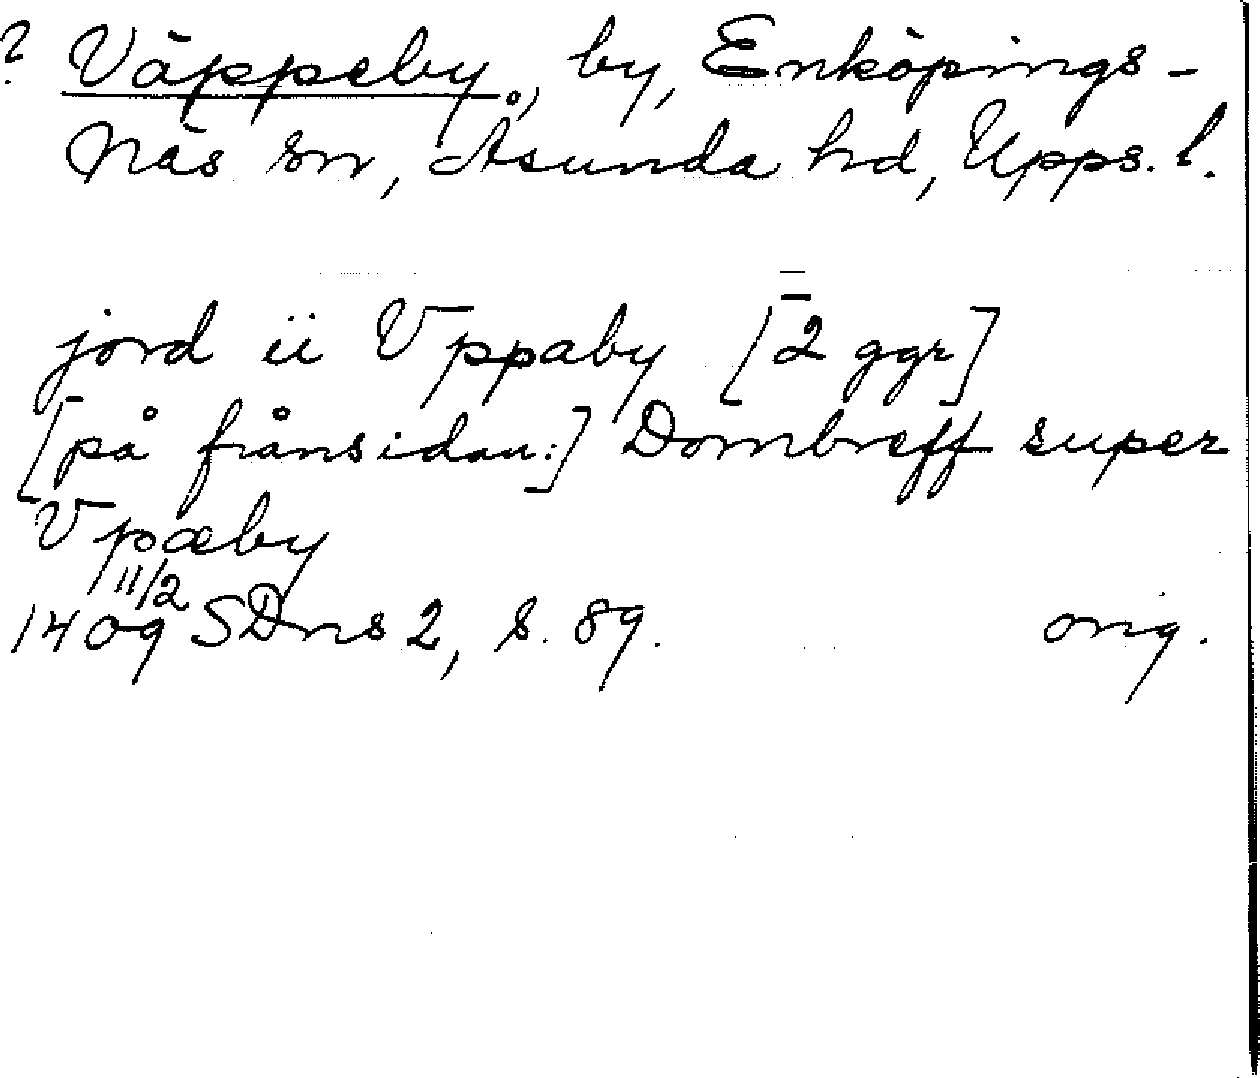 ? Väppeby, by, Enköpings-
Näs sn, Åsunda hd, Upps. l.
jord ii Vppaby [2 ggr]
[på frånsidan:] Dombreff super
Vpæby
11/2
1409 SDns 2, s. 89. orig.